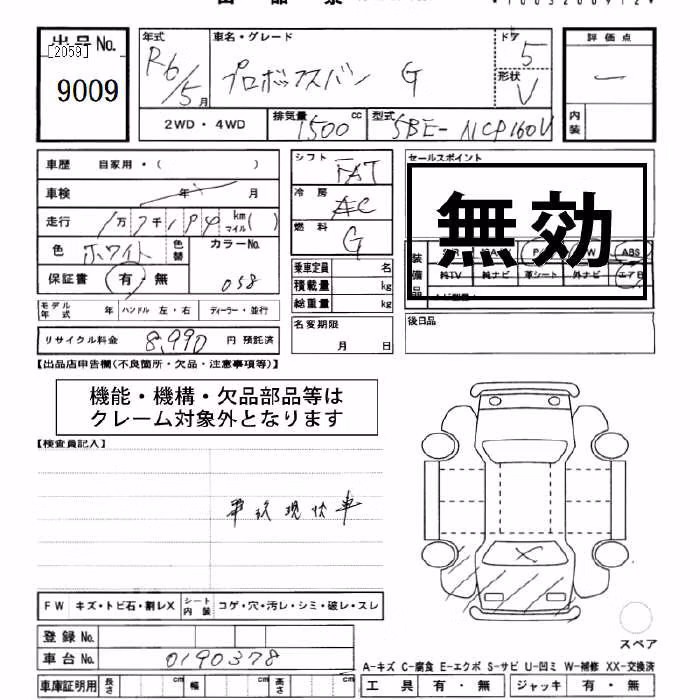 出品No.
[2059]
9009
年式
R6/5月
車名・グレード
プロボックスバン G
ドア
5
形状
V
評価点
内装
2WD・4WD
排気量
1500 cc
型式
5BE-NCP160V
車歴 自家用・( )
車検 年 月
走行 1万7千194 km マイル( )
色 ホワイト 色替
カラーNo.
058
保証書 有・無
モデル年式 年 ハンドル 左・右 ディーラー・並行
リサイクル料金 8,990 円 預託済
シフト
FAT
冷房
AC
燃料
G
乗車定員 名
積載量 kg
総重量 kg
名変期限
月 日
セールスポイント
無効
装備品
ABS
純TV 純ナビ 革シート 外ナビ エアB
後日品
【出品店申告欄(不良箇所・欠品・注意事項等)】
機能・機構・欠品部品等は
クレーム対象外となります
【検査員記入】
現状車
FW キズ・トビ石・割レX シート内装 コゲ・穴・汚レ・シミ・破レ・スレ
登録No.
車台No. 0190378
車庫証明用 長さ cm 幅 cm 高さ cm
スペア
A-キズ C-腐食 E-エクボ S-サビ U-凹ミ W-補修 XX-交換済
工具 有・無 ジャッキ 有・無